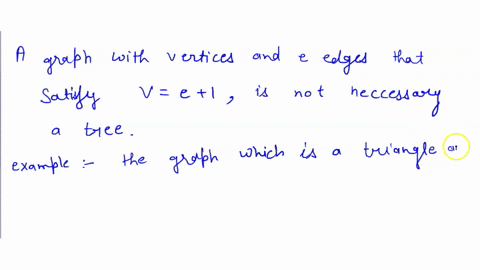 A graph with vertices and e edges that
Satisfy V = e + 1 , is not neccessary
a tree.
example :- the graph which is a triangle or